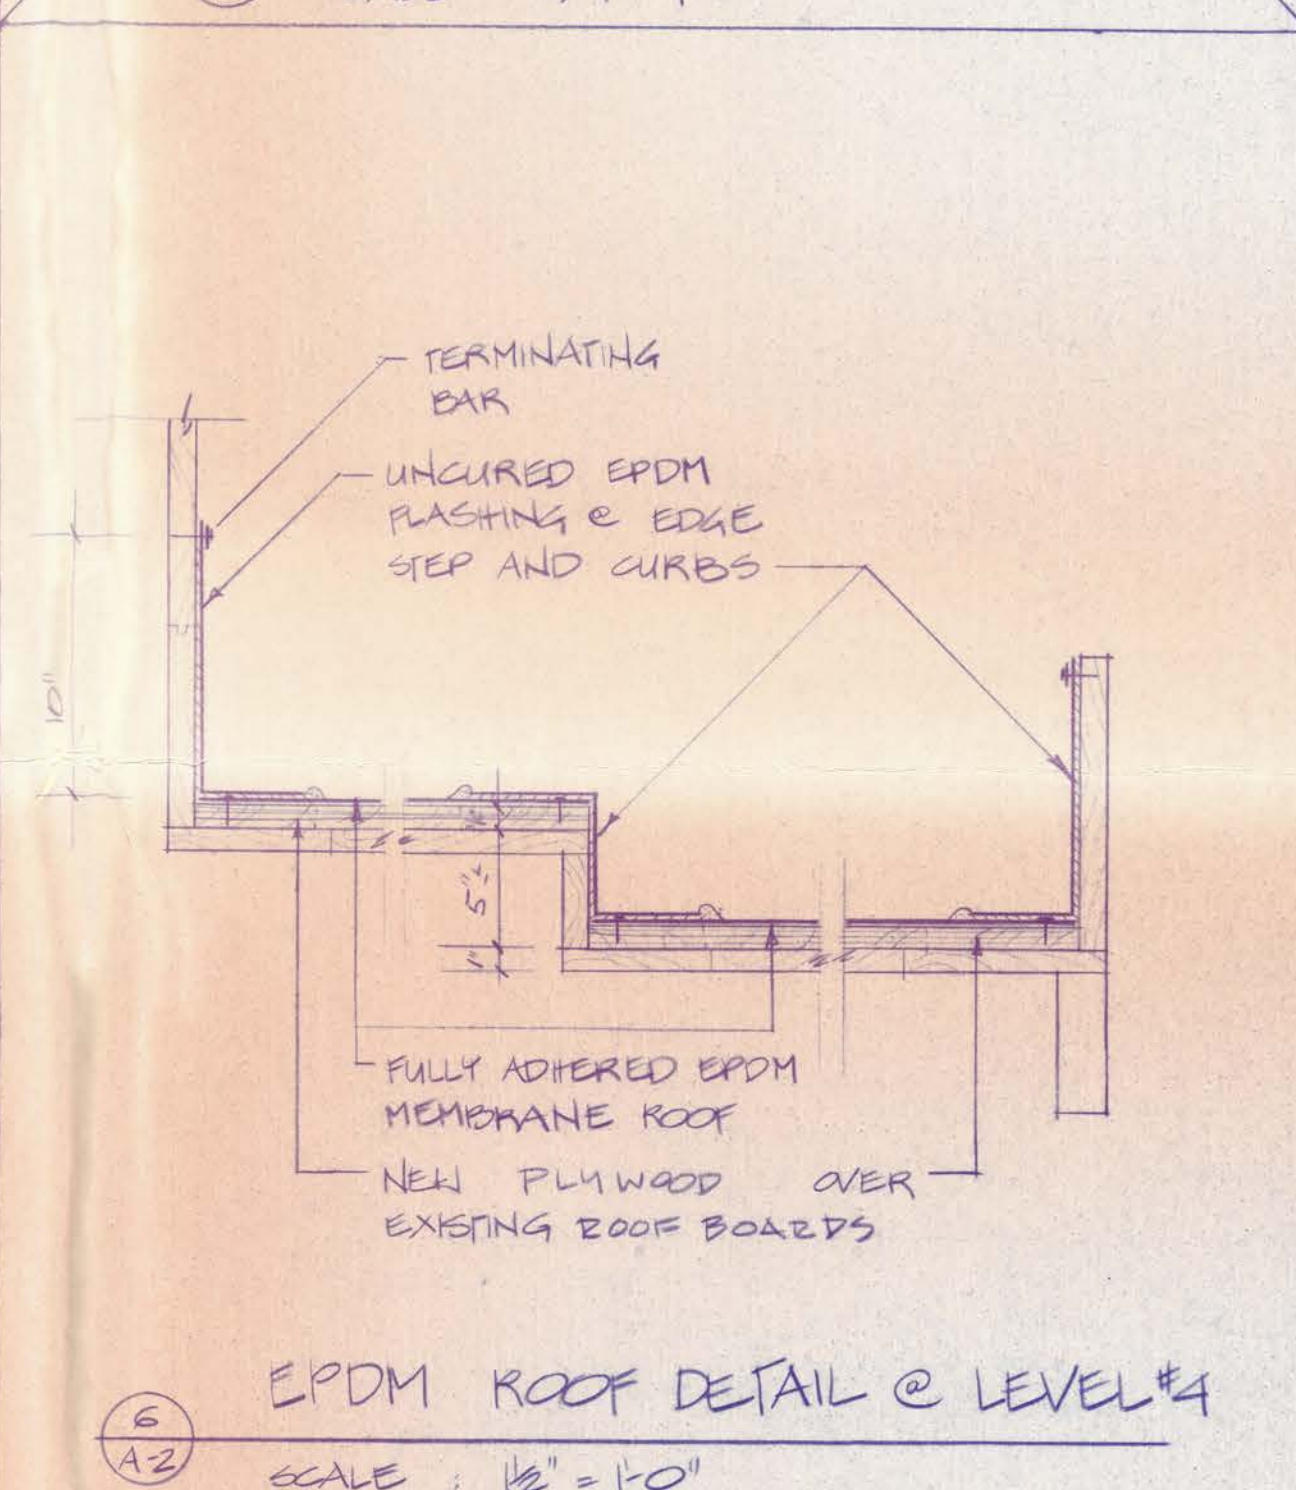 TERMINATING
BAR
UNCURED EPDM
FLASHING @ EDGE
STEP AND CURBS
10"
5"±
1"
FULLY ADHERED EPDM
MEMBRANE ROOF
NEW PLYWOOD OVER
EXISTING ROOF BOARDS
EPDM ROOF DETAIL @ LEVEL #4
6
A-2
SCALE : 1½" = 1'-0"